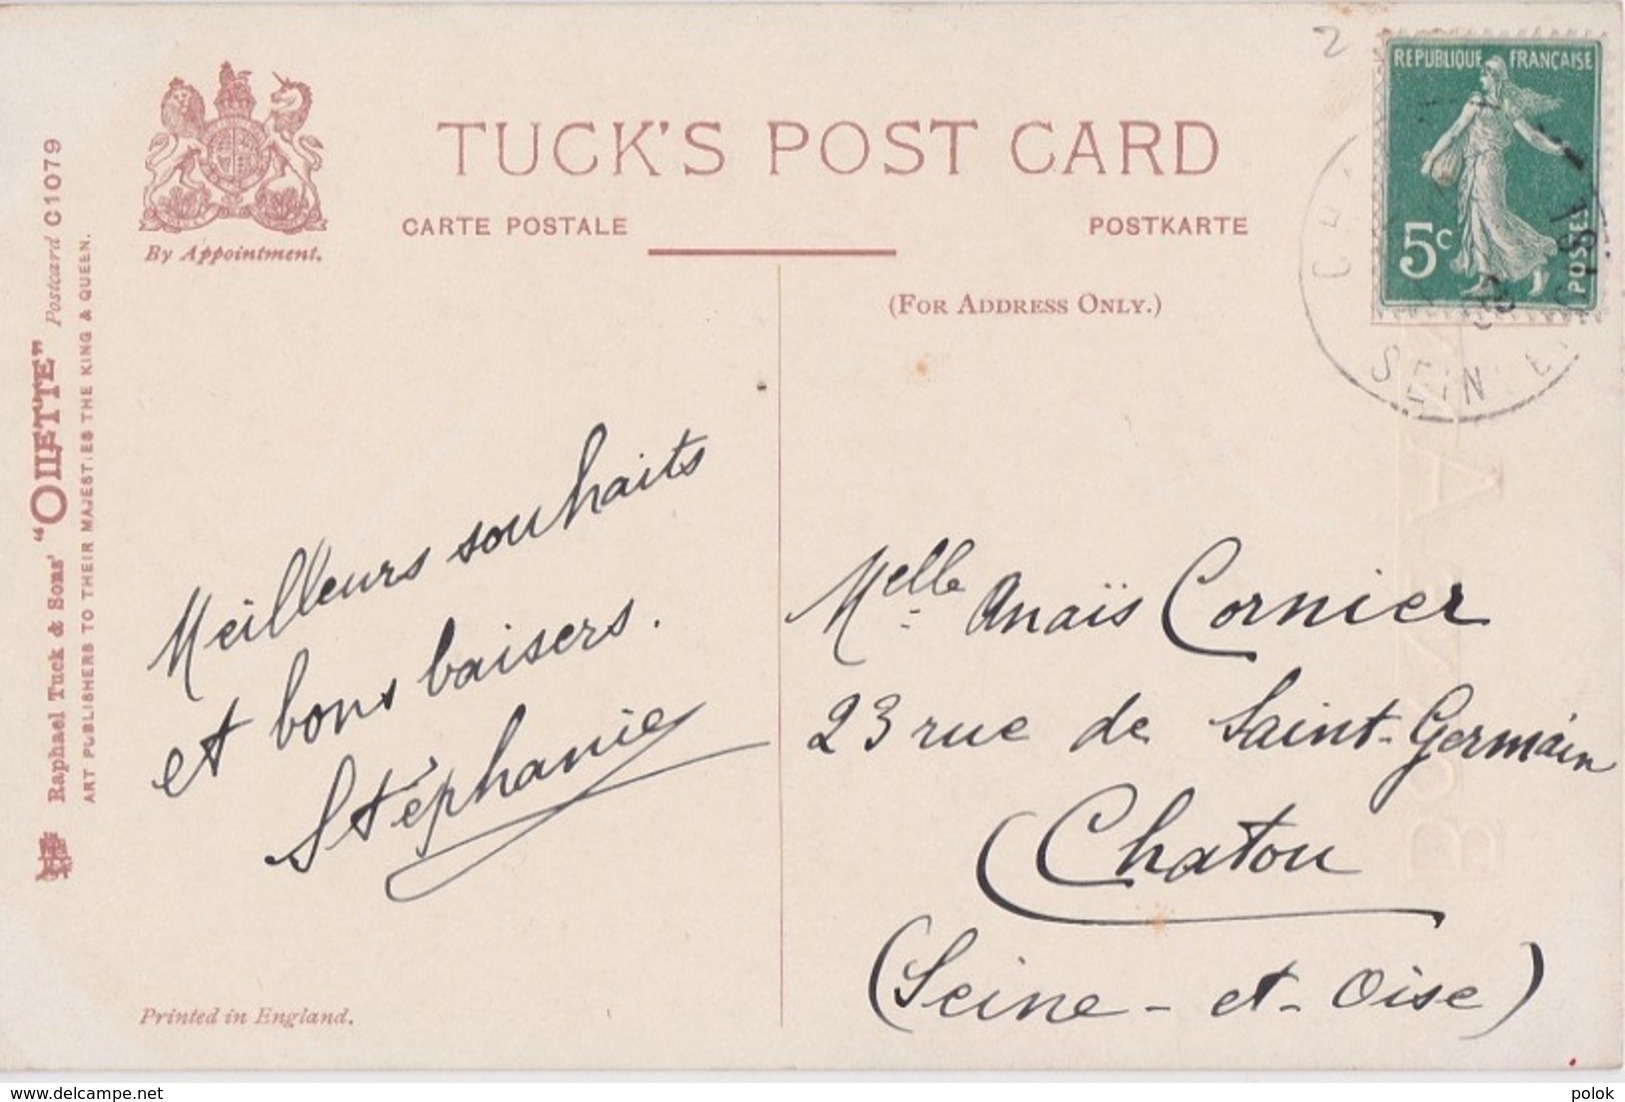 2
REPUBLIQUE FRANÇAISE
5c
POSTES
SEINE
TUCK'S POST CARD
CARTE POSTALE
POSTKARTE
By Appointment.
(FOR ADDRESS ONLY.)
Raphael Tuck & Sons' "OILETTE" Postcard C1079
ART PUBLISHERS TO THEIR MAJESTIES THE KING & QUEEN.
Meilleurs souhaits
et bons baisers.
Stéphanie
Melle Anaïs Cornier
23 rue de Saint-Germain
Chatou
(Seine-et-Oise)
Printed in England.
delcampe.net
polok